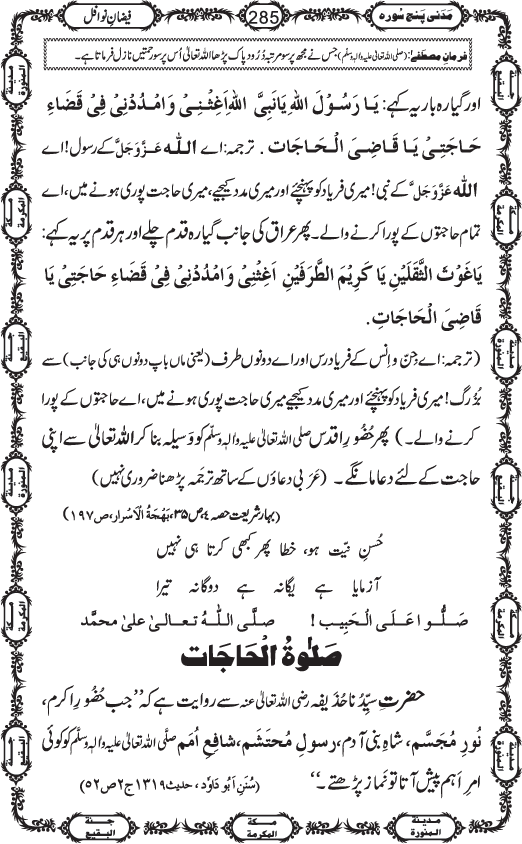 مَدَنی پنج سورہ 285 فیضانِ نوافل
فرمانِ مصطفےٰ: (صلی اللہ تعالیٰ علیہ والہٖ وسلّم) جس نے مجھ پر سو مرتبہ دُرُود پاک پڑھا اللہ تعالیٰ اُس پر سو رحمتیں نازل فرماتا ہے۔
اور گیارہ بار یہ کہے: یَا رَسُوْلَ اللہِ یَانَبِیَّ اللہِ اَغِثْنِیْ وَامْدُدْنِیْ فِیْ قَضَاءِ
حَاجَتِیْ یَا قَاضِیَ الْحَاجَات . ترجمہ: اے اللہ عَزَّوَجَلَّ کے رسول! اے
اللہ عَزَّوَجَلَّ کے نبی! میری فریاد کو پہنچئے اور میری مدد کیجیے، میری حاجت پوری ہونے میں، اے
تمام حاجتوں کے پورا کرنے والے۔ پھر عراق کی جانب گیارہ قدم چلے اور ہر قدم پر یہ کہے:
یَاغَوْثَ الثَّقَلَیْنِ یَا کَرِیْمَ الطَّرَفَیْنِ اَغِثْنِیْ وَامْدُدْنِیْ فِیْ قَضَاءِ حَاجَتِیْ یَا
قَاضِیَ الْحَاجَاتِ.
(ترجمہ: اے جِن و اِنس کے فریاد رس اور اے دونوں طرف (یعنی ماں باپ دونوں ہی کی جانب) سے
بُزُرگ! میری فریاد کو پہنچئے اور میری مدد کیجیے میری حاجت پوری ہونے میں، اے حاجتوں کے پورا
کرنے والے۔) پھر حُضُورِ اقدس صلی اللہ تعالیٰ علیہ والہٖ وسلّم کو وَسیلہ بنا کر اللہ تعالیٰ سے اپنی
حاجت کے لئے دعا مانگے۔ (عَرَبی دعاؤں کے ساتھ ترجَمہ پڑھنا ضَروری نہیں)
(بہارِ شریعت حصہ ۴، ص ۳۵، بَھْجَۃُ الْاَسْرار، ص ۱۹۷)
حُسنِ نیّت ہو، خطا پھر کبھی کرتا ہی نہیں
آزمایا ہے یگانہ ہے دوگانہ تیرا
صَلُّوا عَلَی الْحَبِیب ! صلَّی اللہُ تعالیٰ علیٰ محمَّد
صَلٰوۃُ الْحَاجَات
حضرتِ سیِّدُنا حُذَیفہ رضی اللہ تعالیٰ عنہ سے روایت ہے کہ ”جب حُضُورِ اکرم،
نُورِ مُجَسَّم، شاہِ بنی آدم، رسولِ مُحتَشَم، شافِعِ اُمَم صلی اللہ تعالیٰ علیہ والہٖ وسلّم کو کوئی
امرِ اَہم پیش آتا تو نَماز پڑھتے۔“ (سُنَنِ اَبُو دَاوٗد، حدیث ۱۳۱۹ ج ۲ ص ۵۲)
مدینۃ المنورۃ
مکۃ المکرمۃ
جنۃ البقیع